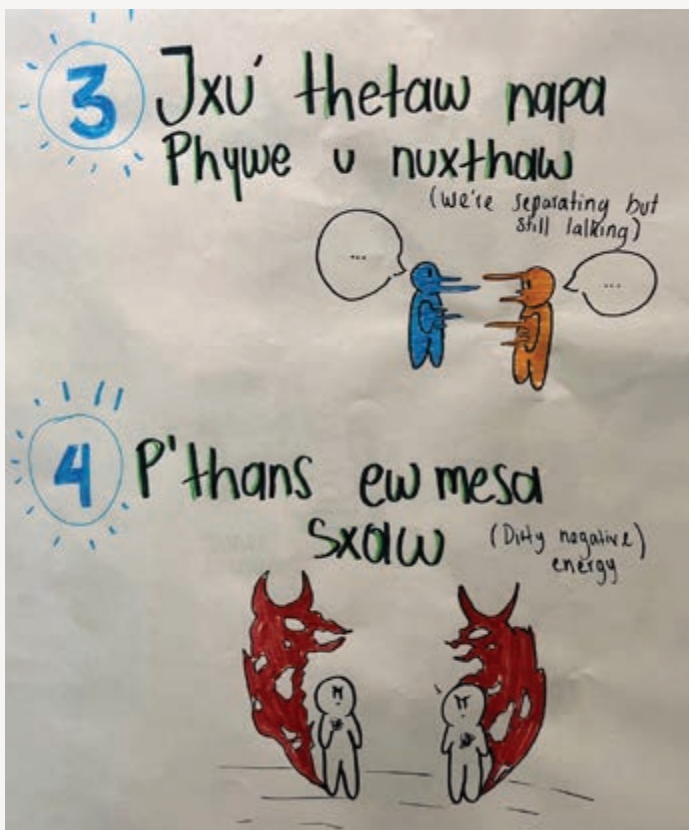 3
Jxu' thetaw napa
Phywe u nuxthaw
(we're separating but
still lalking)
...
...
4
P'thans ew mesa
sxaw
(Dirty negative)
energy